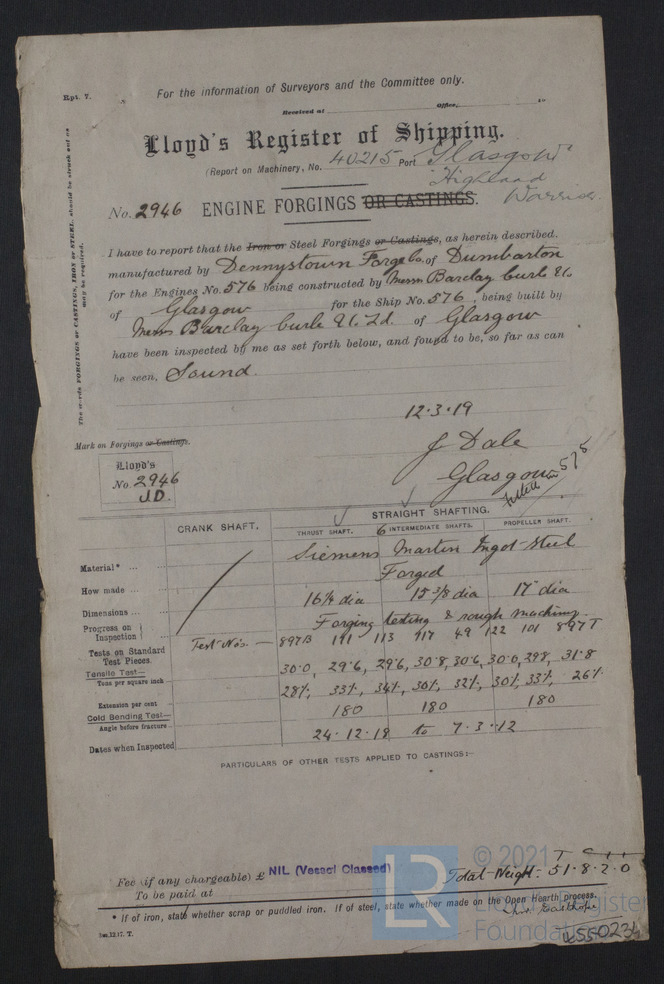 Rpt. 7.
For the information of Surveyors and the Committee only.
Received at Office, 19
Lloyd's Register of Shipping.
(Report on Machinery, No. 40215 Port Glasgow
Highland
Warrior
No. 2946 ENGINE FORGINGS OR CASTINGS.
The words FORGINGS or CASTINGS, IRON or STEEL, should be struck out as may be required.
I have to report that the Iron or Steel Forgings or Castings, as herein described,
manufactured by Dennystown Forge Co. of Dumbarton
for the Engines No. 576 being constructed by Messrs Barclay Curle & Co
of Glasgow for the Ship No. 576, being built by
Messrs Barclay Curle & Co. Ld. of Glasgow
have been inspected by me as set forth below, and found to be, so far as can
be seen, Sound.
12.3.19
J Dale
Glasgow
575
Mark on Forgings or Castings.
Lloyd's
No. 2946
J.D.
CRANK SHAFT. STRAIGHT SHAFTING.
THRUST SHAFT. 6 INTERMEDIATE SHAFTS. PROPELLER SHAFT.
Material* ... Siemens Martin Ingot Steel
How made ... Forged
Dimensions ... 16 1/4 dia 15 3/8 dia 17" dia
Progress on Inspection Forging testing & rough machining.
Tests on Standard Test Pieces. Test Nos. — 897B 191 113 917 49 122 101 897T
Tensile Test—
Tons per square inch 30.0, 29.6, 29.6, 30.8, 30.6, 30.0, 29.8, 31.8
Extension per cent 28%, 33%, 34%, 30%, 32%, 30%, 33%, 26%
Cold Bending Test—
Angle before fracture 180 180 180
Dates when Inspected 24.12.18 to 7.3.12
PARTICULARS OF OTHER TESTS APPLIED TO CASTINGS:—
© 2021
T C
Fee (if any chargeable) £ NIL (Vessel Classed) Total Weight: 51.8.2.0
To be paid at
* If of iron, state whether scrap or puddled iron. If of steel, state whether made on the Open Hearth process.
LR
Lloyd's Register
Foundation